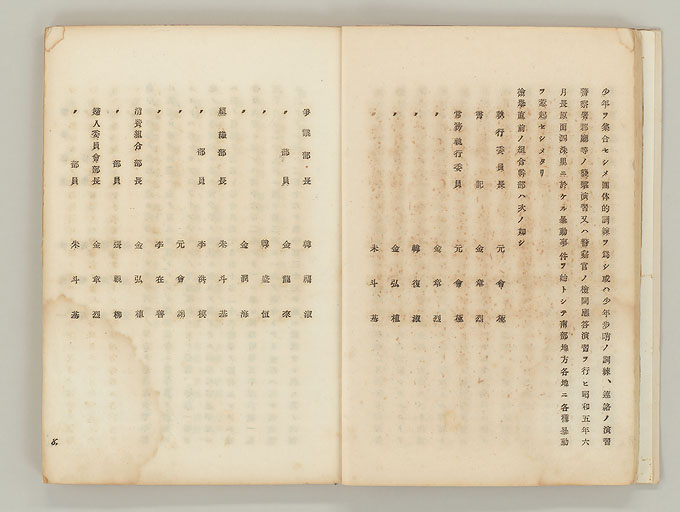 少年ヲ集合セシメ團体的訓練ヲ爲シ或ハ少年歩哨ノ訓練、連絡ノ演習
警察署郡廳等ノ襲撃演習又ハ警察官ノ檢問應答演習ヲ行ヒ昭和五年六
月長原面洞洙里ニ於ケル暴動事件ヲ始トシテ南部地方各地ニ各種暴動
ヲ惹起セシメタリ
檢擧直前ノ組合幹部ハ次ノ如シ
執行委員長 元會極
書記 金章烈
常務執行委員 元會極
〃 金章烈
〃 韓復淑
〃 金弘植
〃 朱斗基
爭議部長 韓福淑
〃 部員 金龍
〃 韓 恒
〃 金 海
組織部長 朱斗基
〃 部員 李洪模
〃 元會
〃 李在善
消費組合部長 金弘植
〃 部員
婦人委員會部長 金章烈
〃 部員 朱斗基